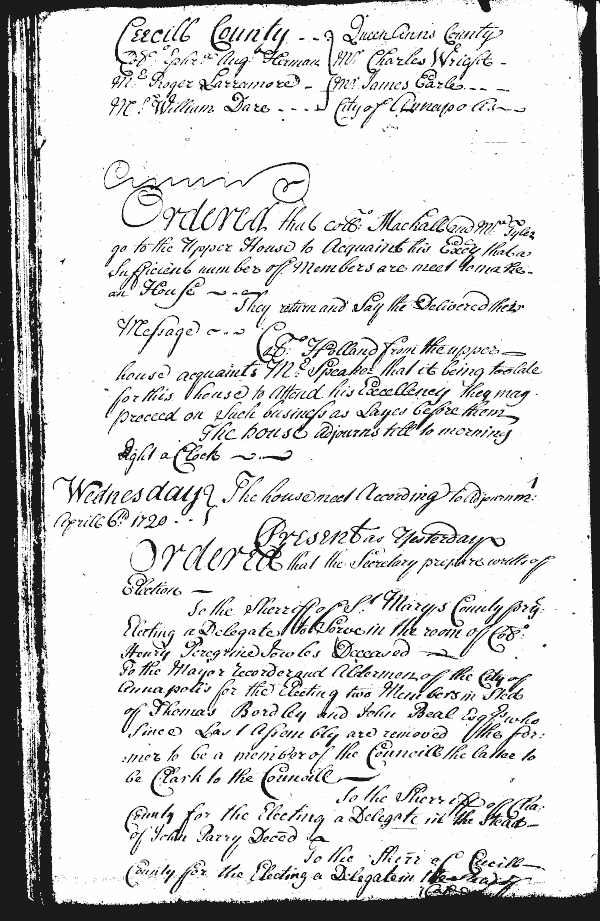 Cæcill County --
Coll.o Ephr.m Aug.t Herman
M.r Roger Larramore -
M.r William Dare ----
Queen Anns County
M.r Charles Wright -
M.r James Earle ---
City of Annapolis --
Ordered that Coll.o Mackall and M.r Tyler
go to the Upper House to Acquaint his Excy that a
Sufficient number of Members are meet to make
an House
They return and Say the Delivered their
Message
Coll.o Holland from the upper
house acquaints M.r Speaker that it being too late
for this house to Attend his Excellency they may
proceed on Such business as Layes before them
The house adjourns till to morning
Eight a Clock
Wednesday } The house meet According to adjournm.t
Aprill 6.th 1720 --
Present as Yesterday
Ordered that the Secretary prepare writts of
Election
To the Sherroff of S.t Marys County for y.e
Electing a Delegate to Serve in the room of Coll.o
Henry Peregrine Jowles Deceased
To the Mayor recorder and Aldermen of the City of
Annapolis for the Electing two Members in Sted
of Thomas Bordley and John Beal Esq.rs who
Since Last Assembly are removed the for:
:mer to be a member of the Councill the latter to
be Clark to the Councill
To the Sherroff of Cha:
County for the Electing a Delegate in the Stead
of John Parry Deced
To the Sherr of Cæcill
County for the Electing a Delegate in the